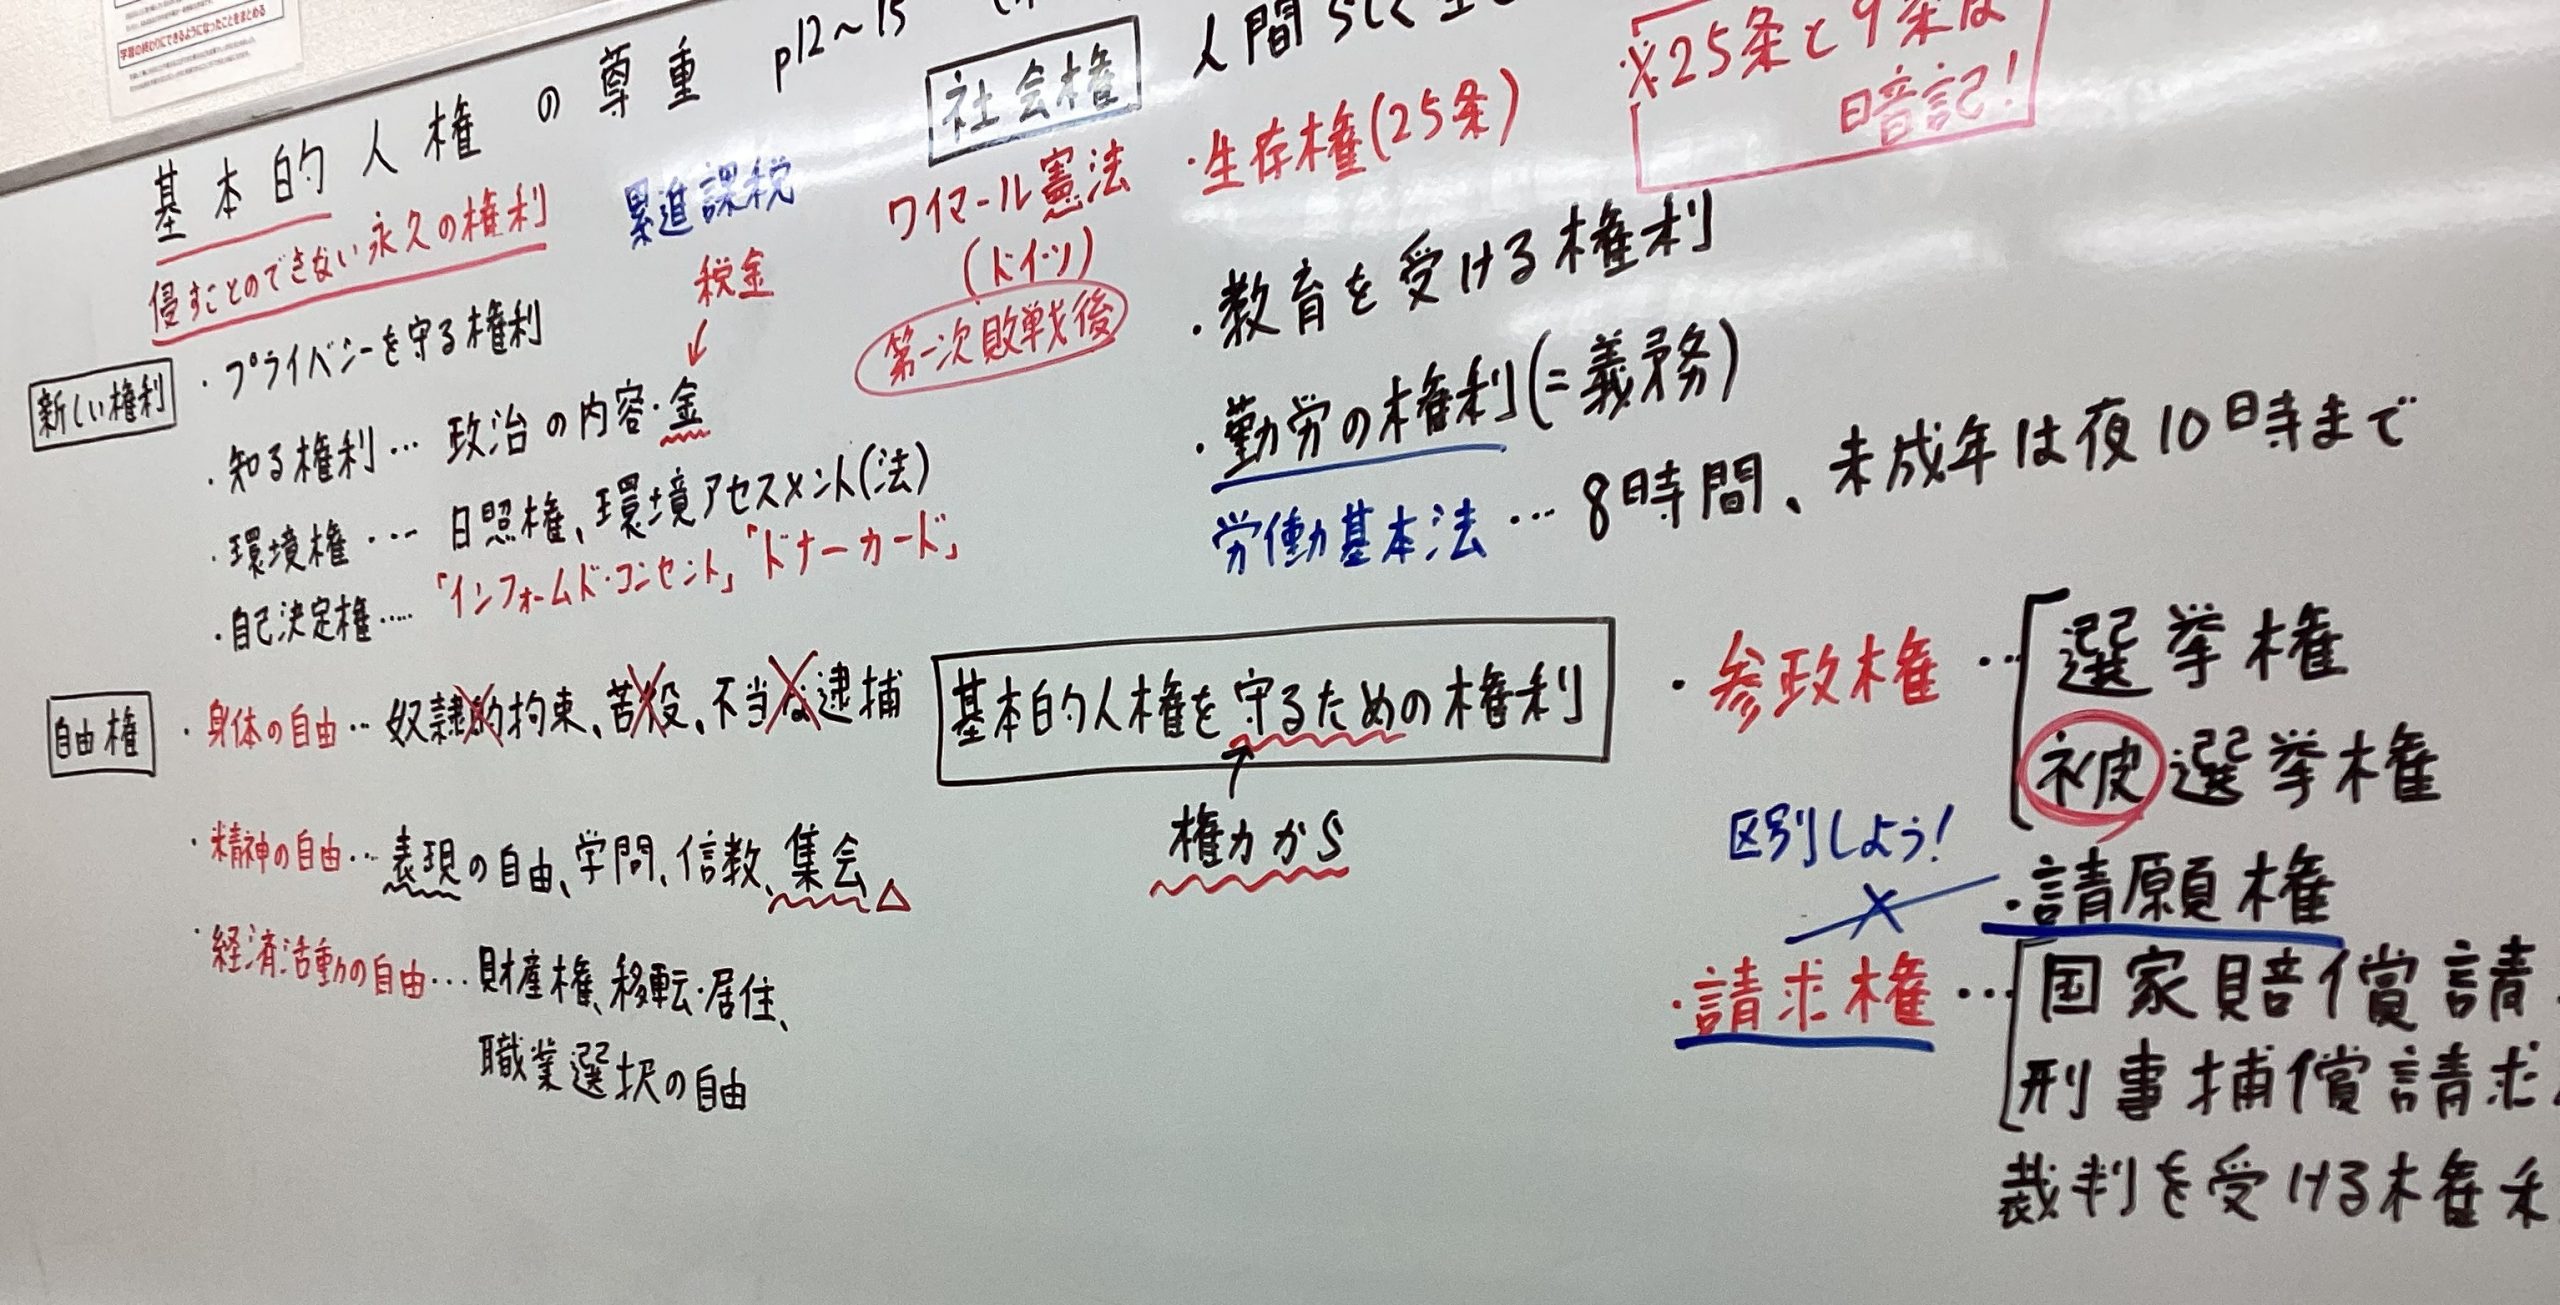 学習の終わりにできるようになったことをまとめる
基本的人権の尊重 p12〜15
侵すことのできない永久の権利
累進課税
税金
新しい権利
・プライバシーを守る権利
・知る権利… 政治の内容・金
・環境権… 日照権、環境アセスメント(法)
・自己決定権…「インフォームド・コンセント」「ドナーカード」
自由権
・身体の自由… 奴隷的拘束、苦役、不当な逮捕
・精神の自由… 表現の自由、学問、信教、集会△
・経済活動の自由… 財産権、移転・居住、
職業選択の自由
社会権
人間らしく
※25条と9条は
暗記!
ワイマール憲法
(ドイツ)
第一次敗戦後
・生存権(25条)
・教育を受ける権利
・勤労の権利(=義務)
労働基本法… 8時間、未成年は夜10時まで
基本的人権を守るための権利
権力から
・参政権… 選挙権
被選挙権
区別しよう!
・請願権
・請求権… 国家賠償請
刑事捕償請求
裁判を受ける権利